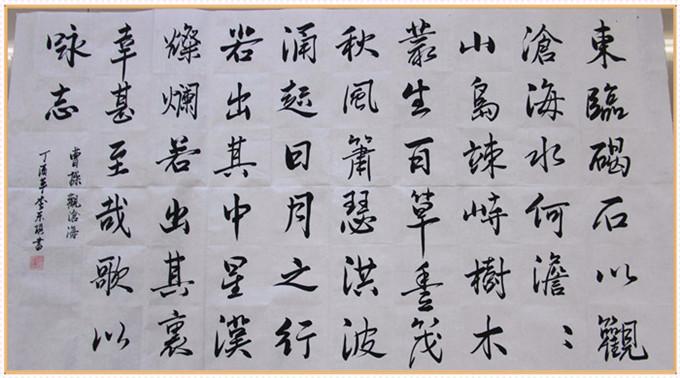 東臨碣石以觀
滄海水何澹〻
山島竦峙樹木
叢生百草豊茂
秋風蕭瑟洪波
涌起日月之行
若出其中星漢
燦爛若出其裏
幸甚至哉歌以
咏志
曹操觀滄海
丁酉年李東書